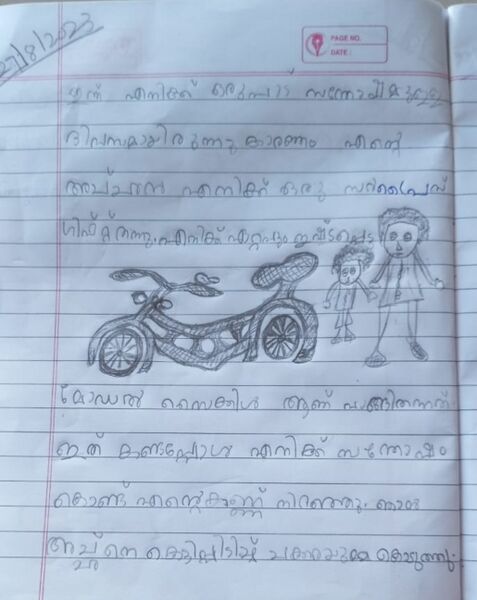 27/8/2023
PAGE NO.
DATE :
ഇന്ന് എനിക്ക് ഒരുപാട് സന്തോഷമുള്ള
ദിവസമായിരുന്നു കാരണം എന്റെ
അച്ചൻ എനിക്ക് ഒരു സർപ്രൈസ്
ഗിഫ്റ്റ് തന്നു. എനിക്ക് ഏറ്റവും ഇഷ്ടപ്പെട്ട
മോഡൽ സൈക്കിൾ ആണ് വാങ്ങിതന്നത്
ഇത് കണ്ടപ്പോൾ എനിക്ക് സന്തോഷം
കൊണ്ട് എന്റെ കണ്ണ് നിറഞ്ഞു. ഞാൻ
അച്ഛനെ കെട്ടിപ്പിടിച്ച് ചക്കരയുമ്മ കൊടുത്തു.